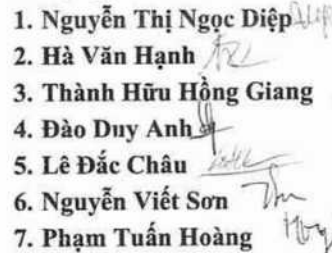 1. Nguyễn Thị Ngọc Diệp
2. Hà Văn Hạnh
3. Thành Hữu Hồng Giang
4. Đào Duy Anh
5. Lê Đắc Châu
6. Nguyễn Viết Sơn
7. Phạm Tuấn Hoàng